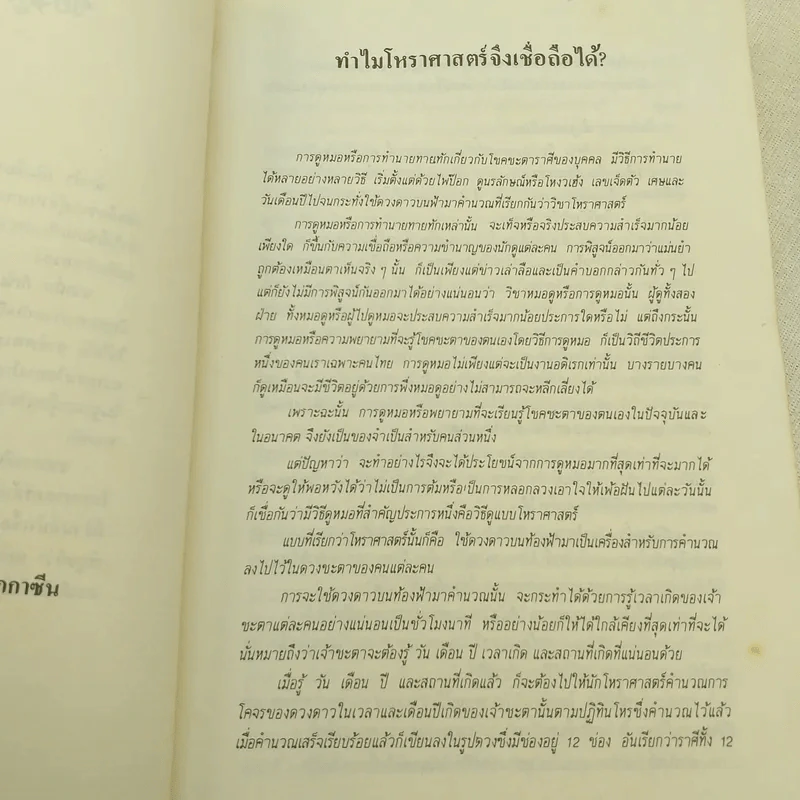 ทำไมโหราศาสตร์จึงเชื่อถือได้?
การดูหมอหรือการทำนายทายทักเกี่ยวกับโชคชะตาราศีของบุคคล มีวิธีการทำนาย
ได้หลายอย่างหลายวิธี เริ่มตั้งแต่ด้วยไพ่ป๊อก ดูนรลักษณ์หรือโหงวเฮ้ง เลขเจ็ดตัว เศษและ
วันเดือนปีไปจนกระทั่งใช้ดวงดาวบนฟ้ามาคำนวณที่เรียกกันว่าวิชาโหราศาสตร์
การดูหมอหรือการทำนายทายทักเหล่านั้น จะเท็จหรือจริงประสบความสำเร็จมากน้อย
เพียงใด ก็ขึ้นกับความเชื่อถือหรือความชำนาญของนักดูแต่ละคน การพิสูจน์ออกมาว่าแม่นยำ
ถูกต้องเหมือนตาเห็นจริง ๆ นั้น ก็เป็นเพียงแต่ข่าวเล่าลือและเป็นคำบอกกล่าวกันทั่ว ๆ ไป
แต่ก็ยังไม่มีการพิสูจน์กันออกมาได้อย่างแน่นอนว่า วิชาหมอดูหรือการดูหมอนั้น ผู้ดูทั้งสอง
ฝ่าย ทั้งหมอดูหรือผู้ไปดูหมอจะประสบความสำเร็จมากน้อยประการใดหรือไม่ แต่ถึงกระนั้น
การดูหมอหรือความพยายามที่จะรู้โชคชะตาของตนเองโดยวิธีการดูหมอ ก็เป็นวิถีชีวิตประการ
หนึ่งของคนเราเฉพาะคนไทย การดูหมอไม่เพียงแต่จะเป็นงานอดิเรกเท่านั้น บางรายบางคน
ก็ดูเหมือนจะมีชีวิตอยู่ด้วยการพึ่งหมอดูอย่างไม่สามารถจะหลีกเลี่ยงได้
เพราะฉะนั้น การดูหมอหรือพยายามที่จะเรียนรู้โชคชะตาของตนเองในปัจจุบันและ
ในอนาคต จึงยังเป็นของจำเป็นสำหรับคนส่วนหนึ่ง
แต่ปัญหาว่า จะทำอย่างไรจึงจะได้ประโยชน์จากการดูหมอมากที่สุดเท่าที่จะมากได้
หรือจะดูให้พอหวังได้ว่าไม่เป็นการต้มหรือเป็นการหลอกลวงเอาใจให้เพ้อฝันไปแต่ละวันนั้น
ก็เชื่อกันว่ามีวิธีดูหมอที่สำคัญประการหนึ่งคือวิธีดูแบบโหราศาสตร์
แบบที่เรียกว่าโหราศาสตร์นั้นก็คือ ใช้ดวงดาวบนท้องฟ้ามาเป็นเครื่องสำหรับการคำนวณ
ลงไปไว้ในดวงชะตาของคนแต่ละคน
การจะใช้ดวงดาวบนท้องฟ้ามาคำนวณนั้น จะกระทำได้ด้วยการรู้เวลาเกิดของเจ้า
ชะตาแต่ละคนอย่างแน่นอนเป็นชั่วโมงนาที หรืออย่างน้อยก็ให้ได้ใกล้เคียงที่สุดเท่าที่จะได้
นั่นหมายถึงว่าเจ้าชะตาจะต้องรู้ วัน เดือน ปี เวลาเกิด และสถานที่เกิดที่แน่นอนด้วย
เมื่อรู้ วัน เดือน ปี และสถานที่เกิดแล้ว ก็จะต้องไปให้นักโหราศาสตร์คำนวณการ
โคจรของดวงดาวในเวลาและเดือนปีเกิดของเจ้าชะตานั้นตามปฏิทินโหรซึ่งคำนวณไว้แล้ว
เมื่อคำนวณเสร็จเรียบร้อยแล้วก็เขียนลงในรูปดวงซึ่งมีช่องอยู่ 12 ช่อง อันเรียกว่าราศีทั้ง 12
กกาซีน